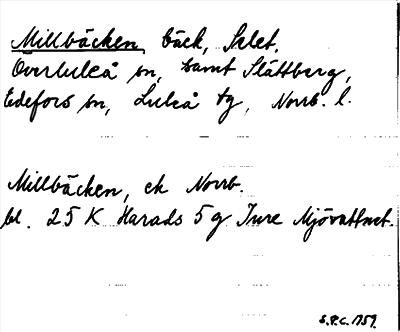 Millbäcken, bäck, Sclet,
Överluleå sn, samt Slättberg,
Edefors sn, Luleå tg, Norrb. l.
Millbäcken, ek Norrb.
bl. 25 K Harads 5 g Ture Mjövattnet.
S.P.C. 1759.